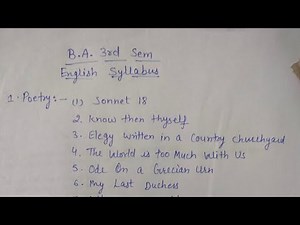 B.A. 3rd Sem
English Syllabus
1. Poetry:- (1) Sonnet 18
2. Know then thyself
3. Elegy written in a Country churchyard
4. The World is too Much With Us
5. Ode On a Grecian Urn
6. My Last Duchess